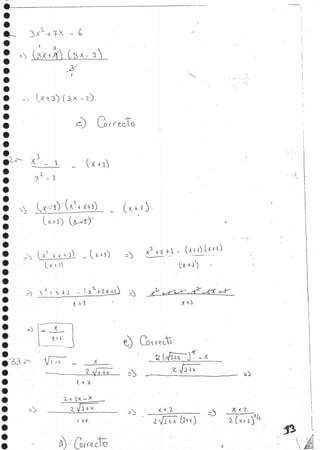 3x² + 7x - 6
=> (3x+9) (3x-2)
3
=> (x+3) (3x-2)
c) Correcto
x³ - 1 - (x+1)
x² - 1
=> (x-1) (x²+x+1) - (x+1)
(x+1) (x-1)
=> (x²+x+1) - (x+1) => x²+x+1 - (x+1)(x+1)
(x+1) (x+1)
=> x²+x+1 - (x²+2x+1) =>
x+1 x+1
=> - x
x+1
e) Correcto
33 √1+x - x => 2(√1+x)² - x =>
2√1+x 2√1+x
1+x
=> 2+2x-x => x+2 => x+2
2√1+x 2√1+x (1+x) 2(x+1)³/²
1+x
d) Correcto
33